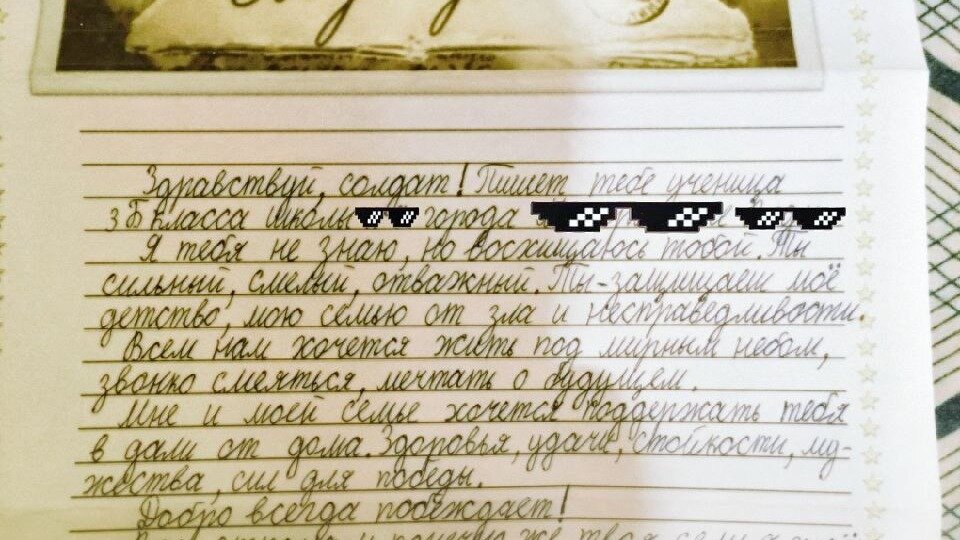 Здравствуй, солдат! Пишет тебе ученица
3 Б класса школы города
Я тебя не знаю, но восхищаюсь тобой. Ты
сильный, смелый, отважный. Ты-защищаешь моё
детство, мою семью от зла и несправедливости.
Всем нам хочется жить под мирным небом,
звонко смеяться, мечтать о будущем.
Мне и моей семье хочется поддержать тебя
в дали от дома. Здоровья, удачи, стойкости, му-
жества, сил для победы.
Добро всегда побеждает!